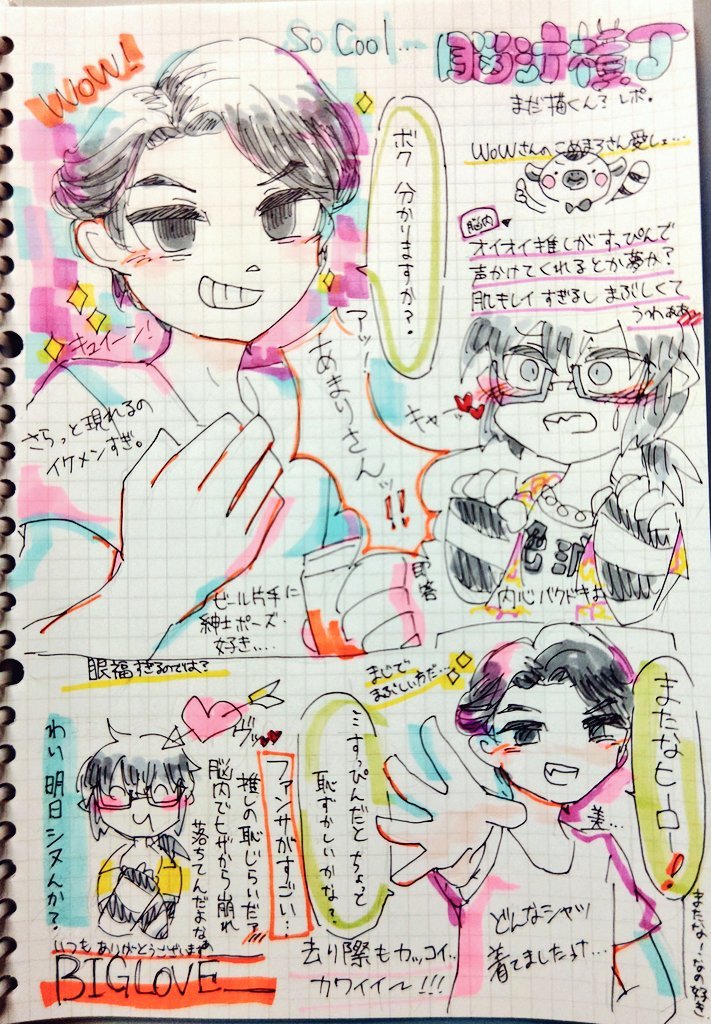 So Cool...
脳汁横丁
まだ描くん？レポ。
WOW!
WOWさんのこめまろさん愛しょ…
脳内
オイオイ推しがすっぴんで
声かけてくれるとか夢か？
肌もレイすぎるし まぶしくて
うわぁぁ
ボク 分かりますか？
キュイーン！
さらっと現れるの
イケメンすぎ。
アッ
あまりさんッ!!
キャーッ
即答
内心バクドキよ
ビール片手に
紳士ポーズ
好き....
眼福すぎるのでは？
まじで
まぶしい方だ…
またなヒーロー！
またな！なの好き
ミすっぴんだと ちょっと
恥ずかしいかな？
ヴッ
ファンサがすごい…
推しの恥じらいだァ
脳内でヒザから崩れ
落ちてんだよな
わい 明日シヌんか？
いつも ありがとうございます
BIG LOVE
美…
どんなシャツ
着てましたっけ…
去り際もカッコイ..
カワイイ〜!!!